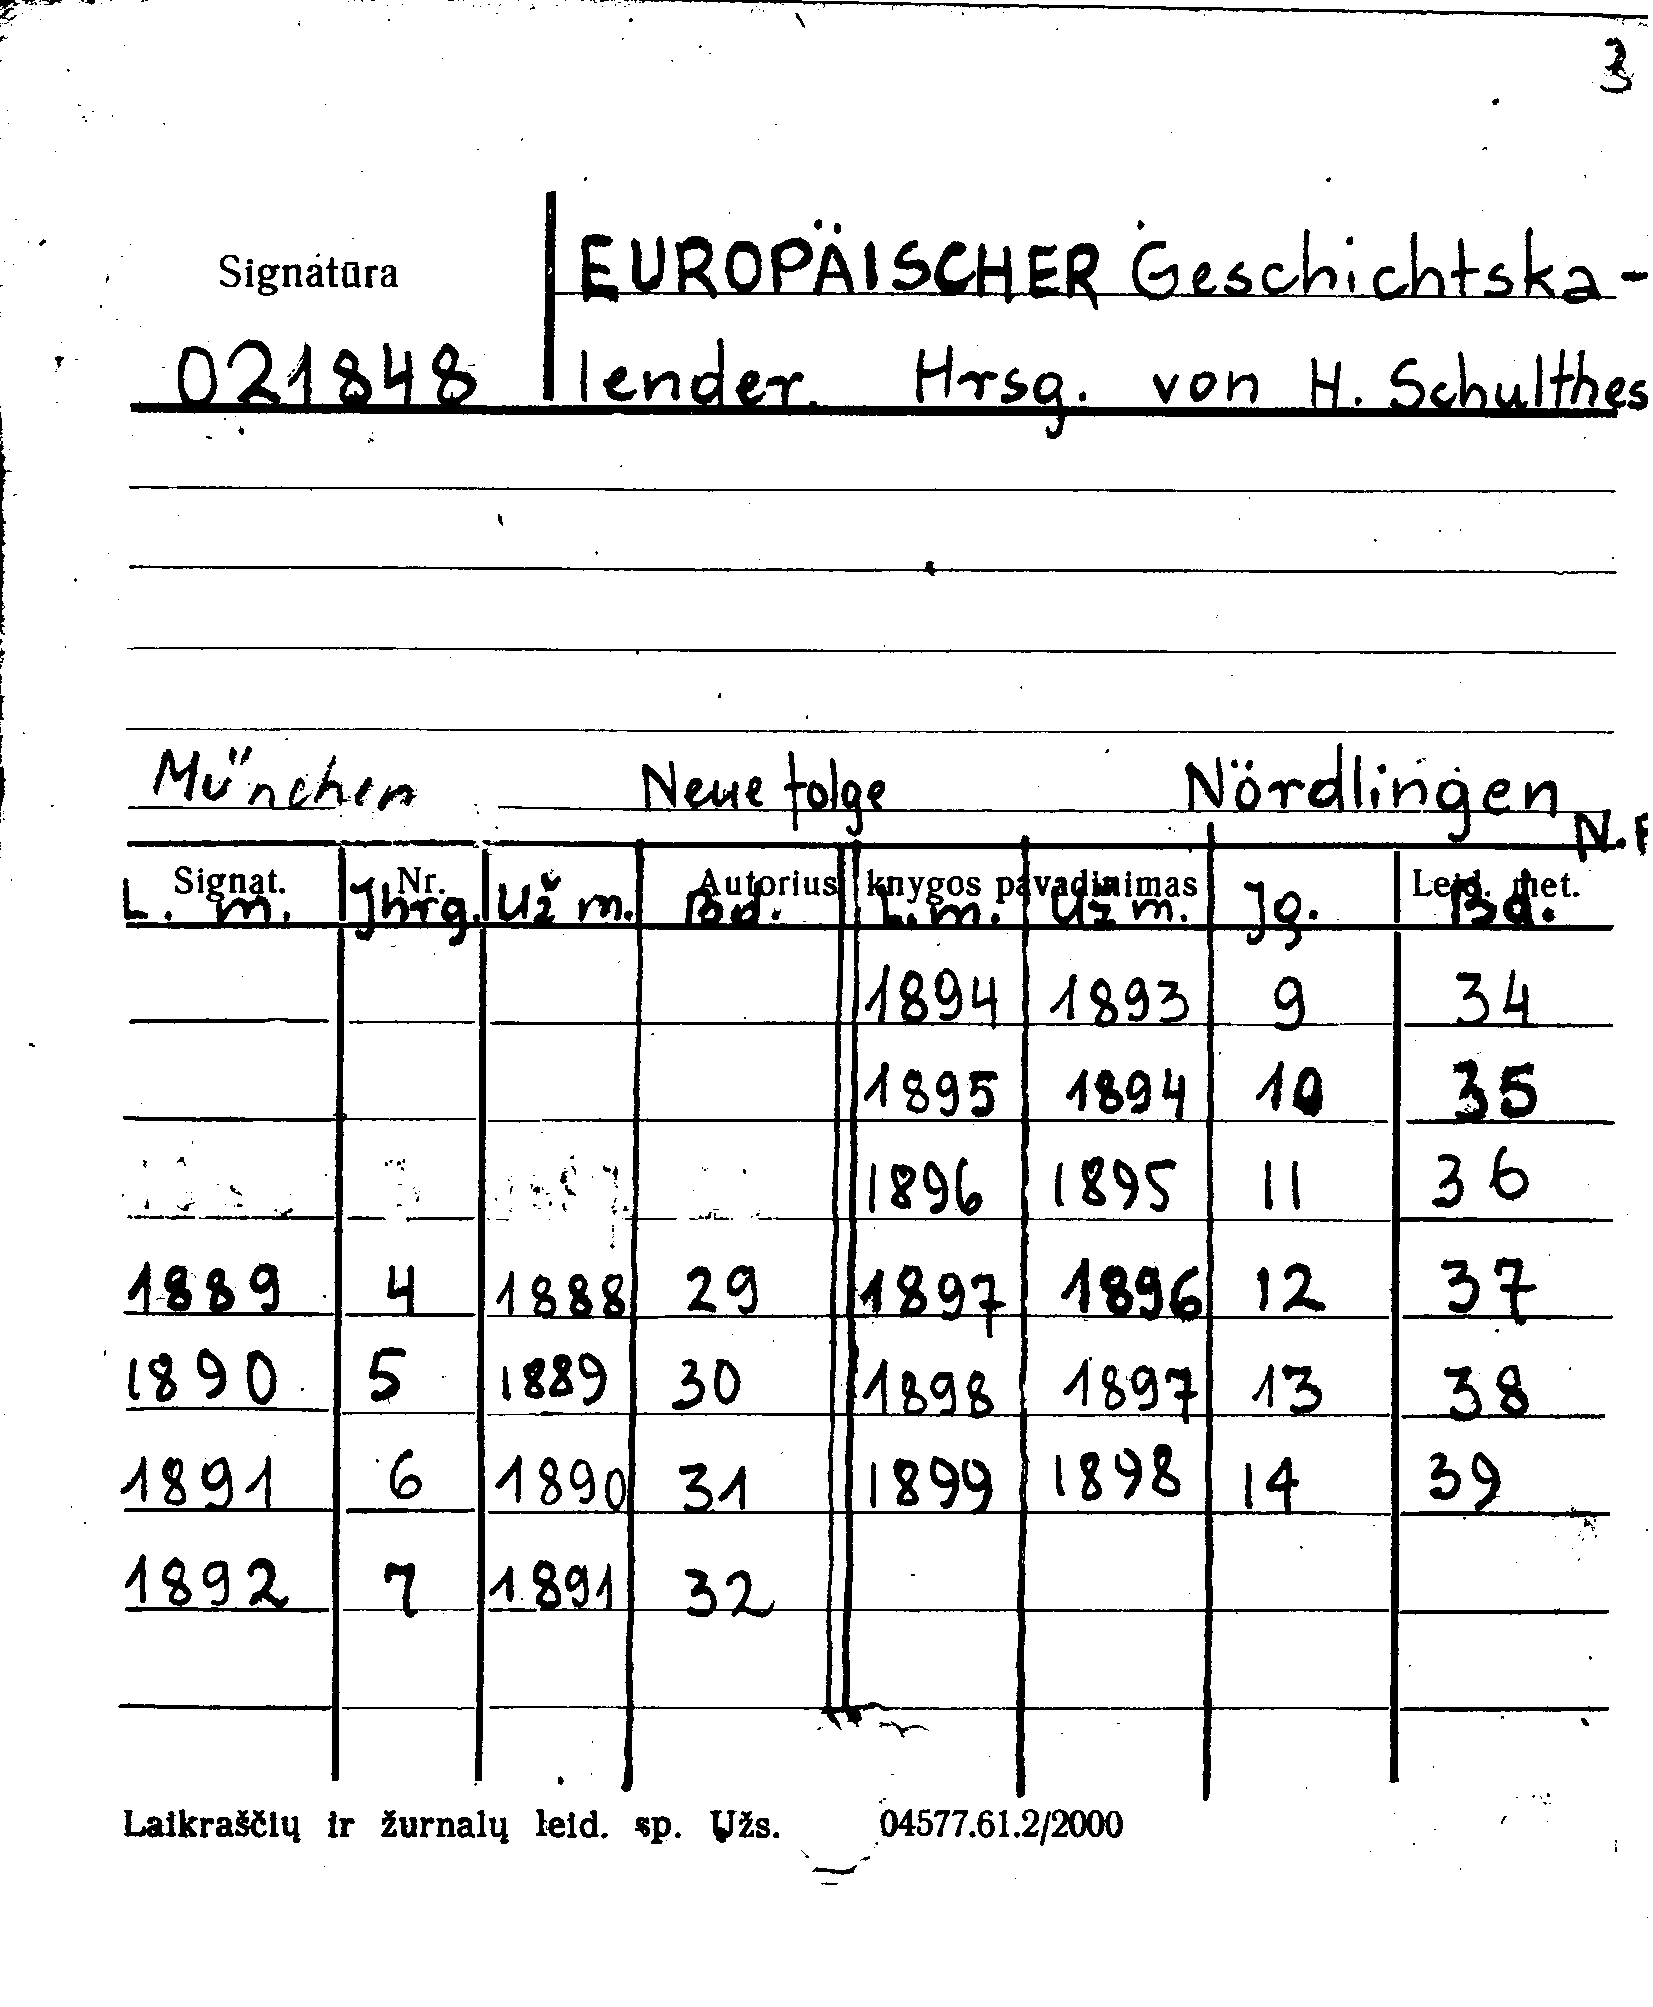 3
Signatūra EUROPÄISCHER Geschichtska-
021848 lender. Hrsg. von H. Schulthes
München Neue folge Nördlingen
N.F
Signat. Nr. Autorius knygos pavadinimas Leid. met.
L. m. Jhrg. Už m. Bd. L. m. Už m. Jg. Bd.
1894 1893 9 34
1895 1894 10 35
1896 1895 11 36
1889 4 1888 29 1897 1896 12 37
1890 5 1889 30 1898 1897 13 38
1891 6 1890 31 1899 1898 14 39
1892 7 1891 32
Laikraščių ir žurnalų leid. sp. Užs. 04577.61.2/2000